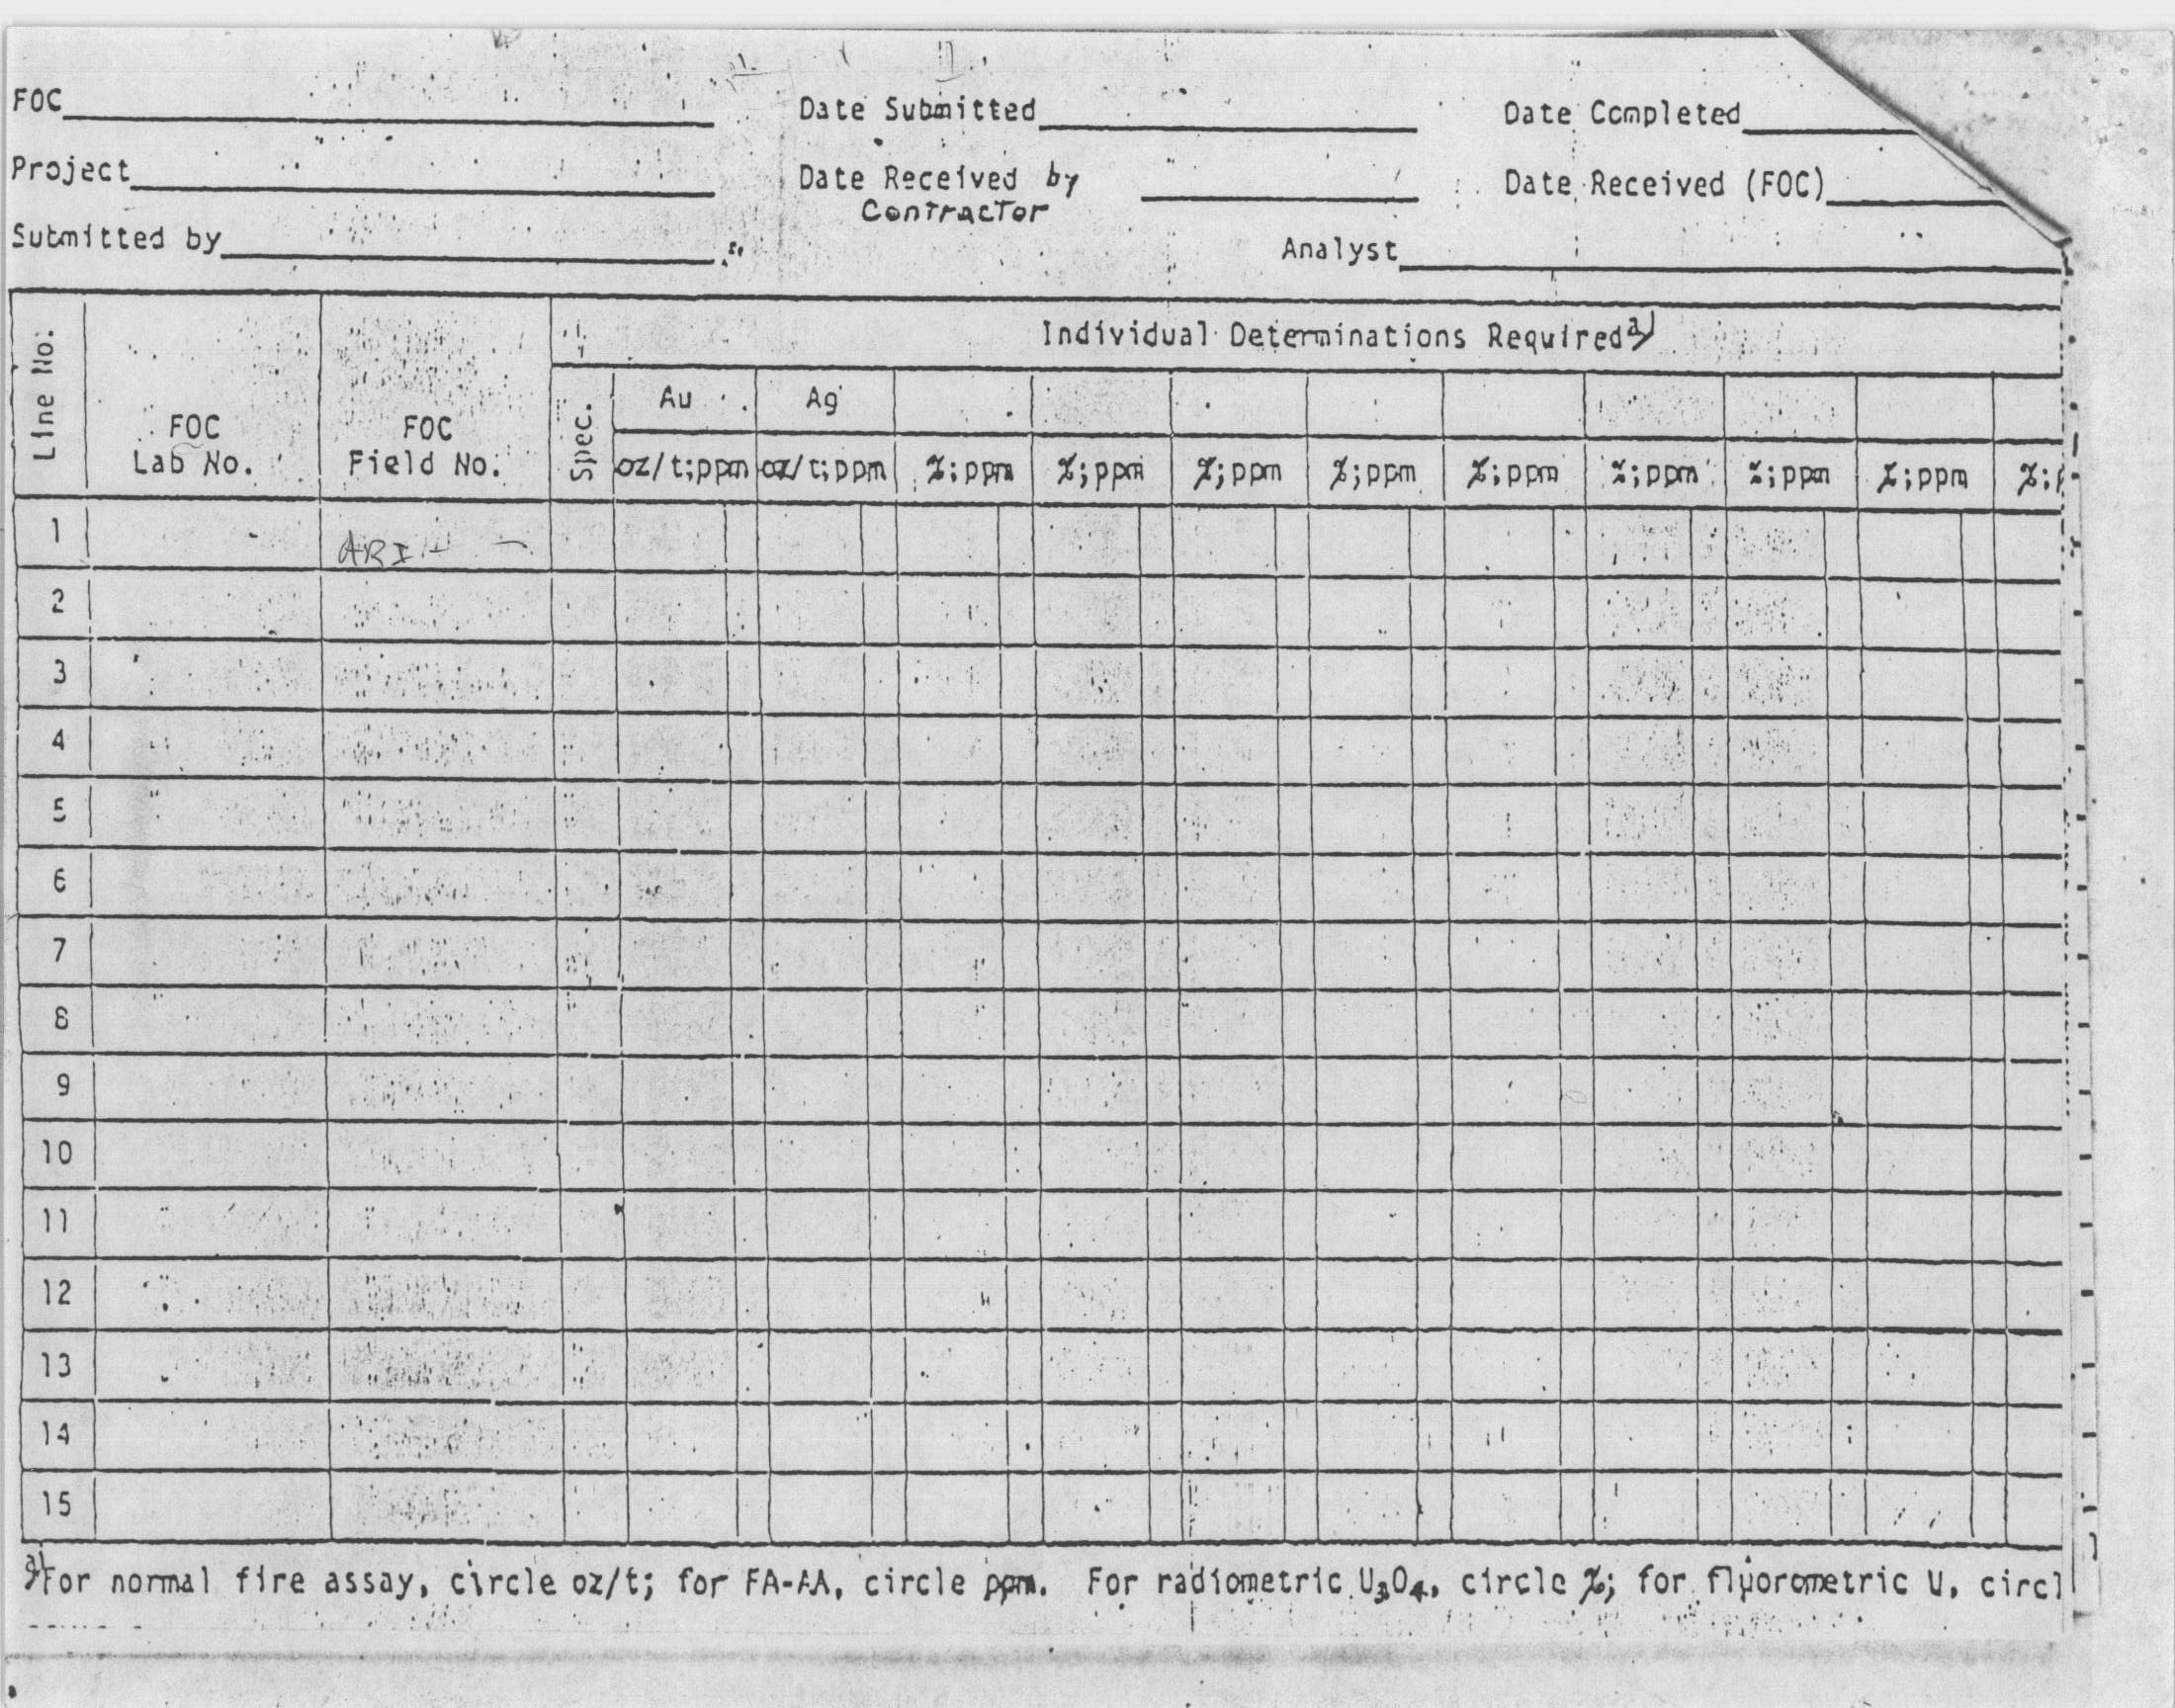 FOC Date Submitted Date Completed
Project Date Received by Date Received (FOC)
Contractor
Submitted by Analyst
Line No. FOC Lab No. FOC Field No. Spec. Individual Determinations Required a)
Au Ag
oz/t;ppm oz/t;ppm %;ppm %;ppm %;ppm %;ppm %;ppm %;ppm %;ppm %;ppm %;p
1 ARI -
2
3
4
5
6
7
8
9
10
11
12
13
14
15
a) For normal fire assay, circle oz/t; for FA-AA, circle ppm. For radiometric U3O4, circle %; for fluorometric U, circl